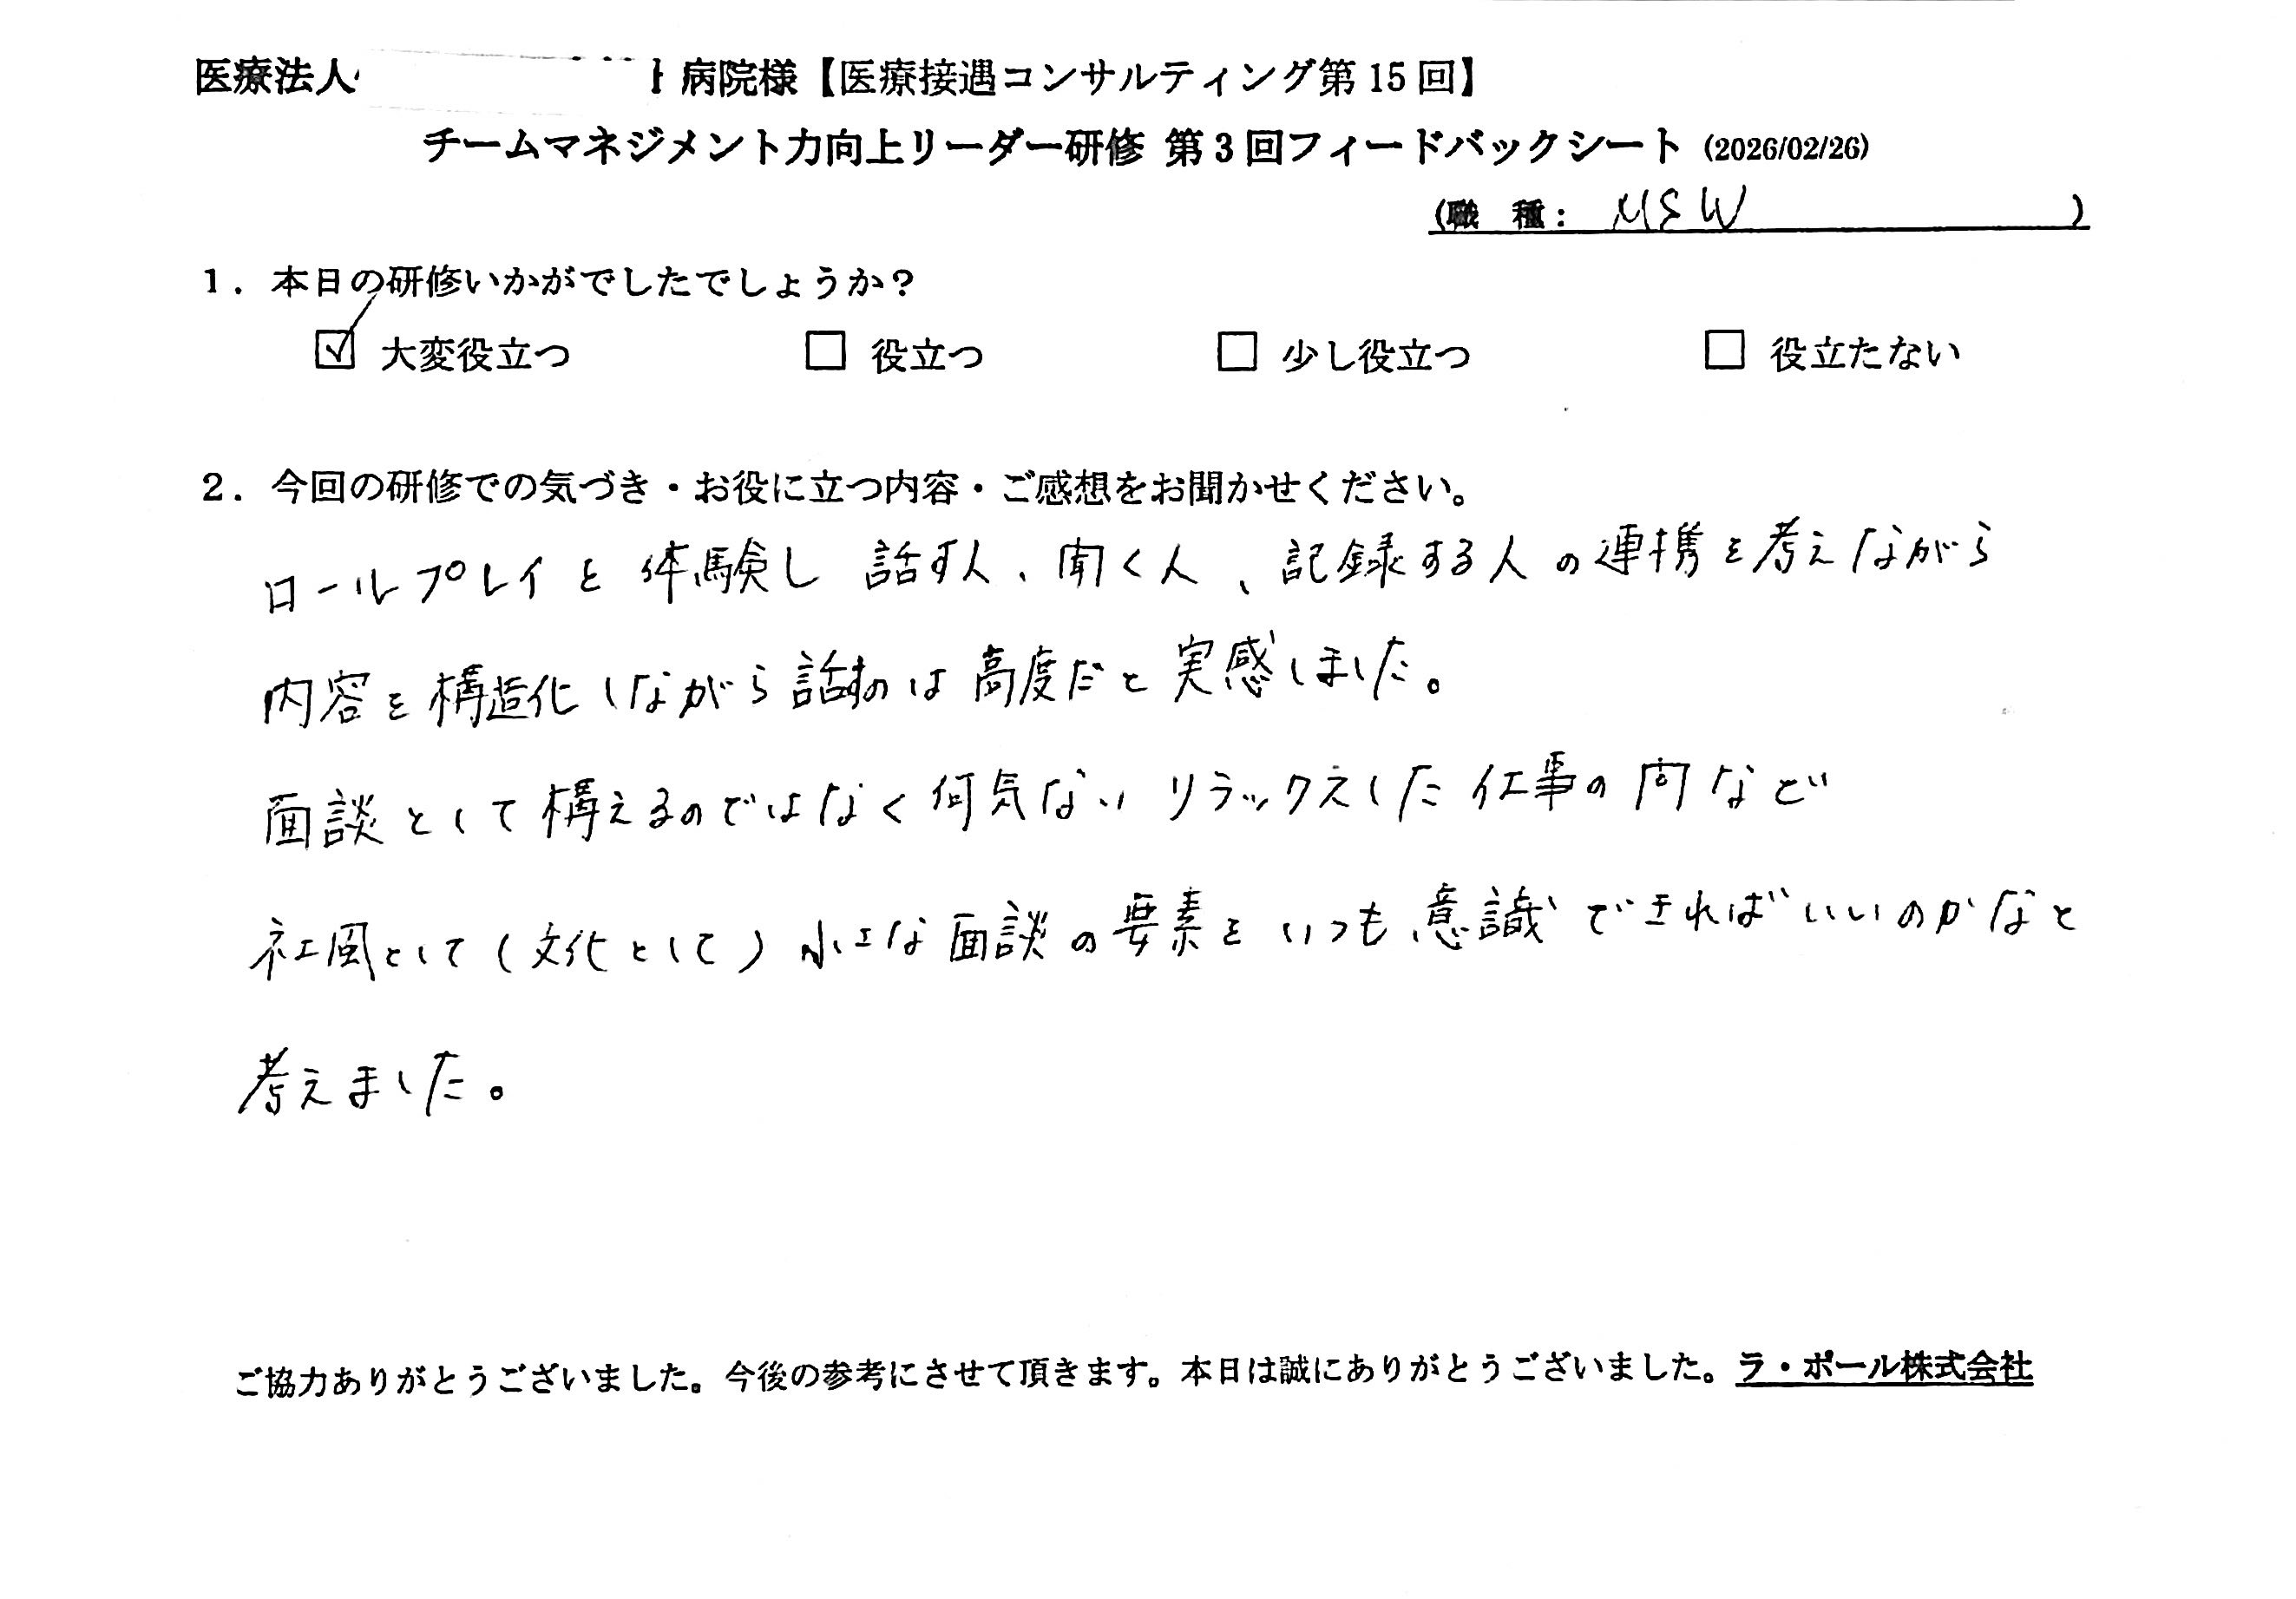 医療法人 病院様【医療接遇コンサルティング第15回】
チームマネジメント力向上リーダー研修 第3回フィードバックシート (2026/02/26)
(職 種： MSW )
1．本日の研修いかがでしたでしょうか？
☑ 大変役立つ □ 役立つ □ 少し役立つ □ 役立たない
2．今回の研修での気づき・お役に立つ内容・ご感想をお聞かせください。
ロールプレイを体験し 話す人、聞く人、記録する人の連携を考えながら
内容を構造化しながら話すのは高度だと実感しました。
面談として構えるのではなく何気ないリラックスした仕事の間など
社風として（文化として）小さな面談の要素をいつも意識できればいいのかなと
考えました。
ご協力ありがとうございました。今後の参考にさせて頂きます。本日は誠にありがとうございました。ラ・ポール株式会社